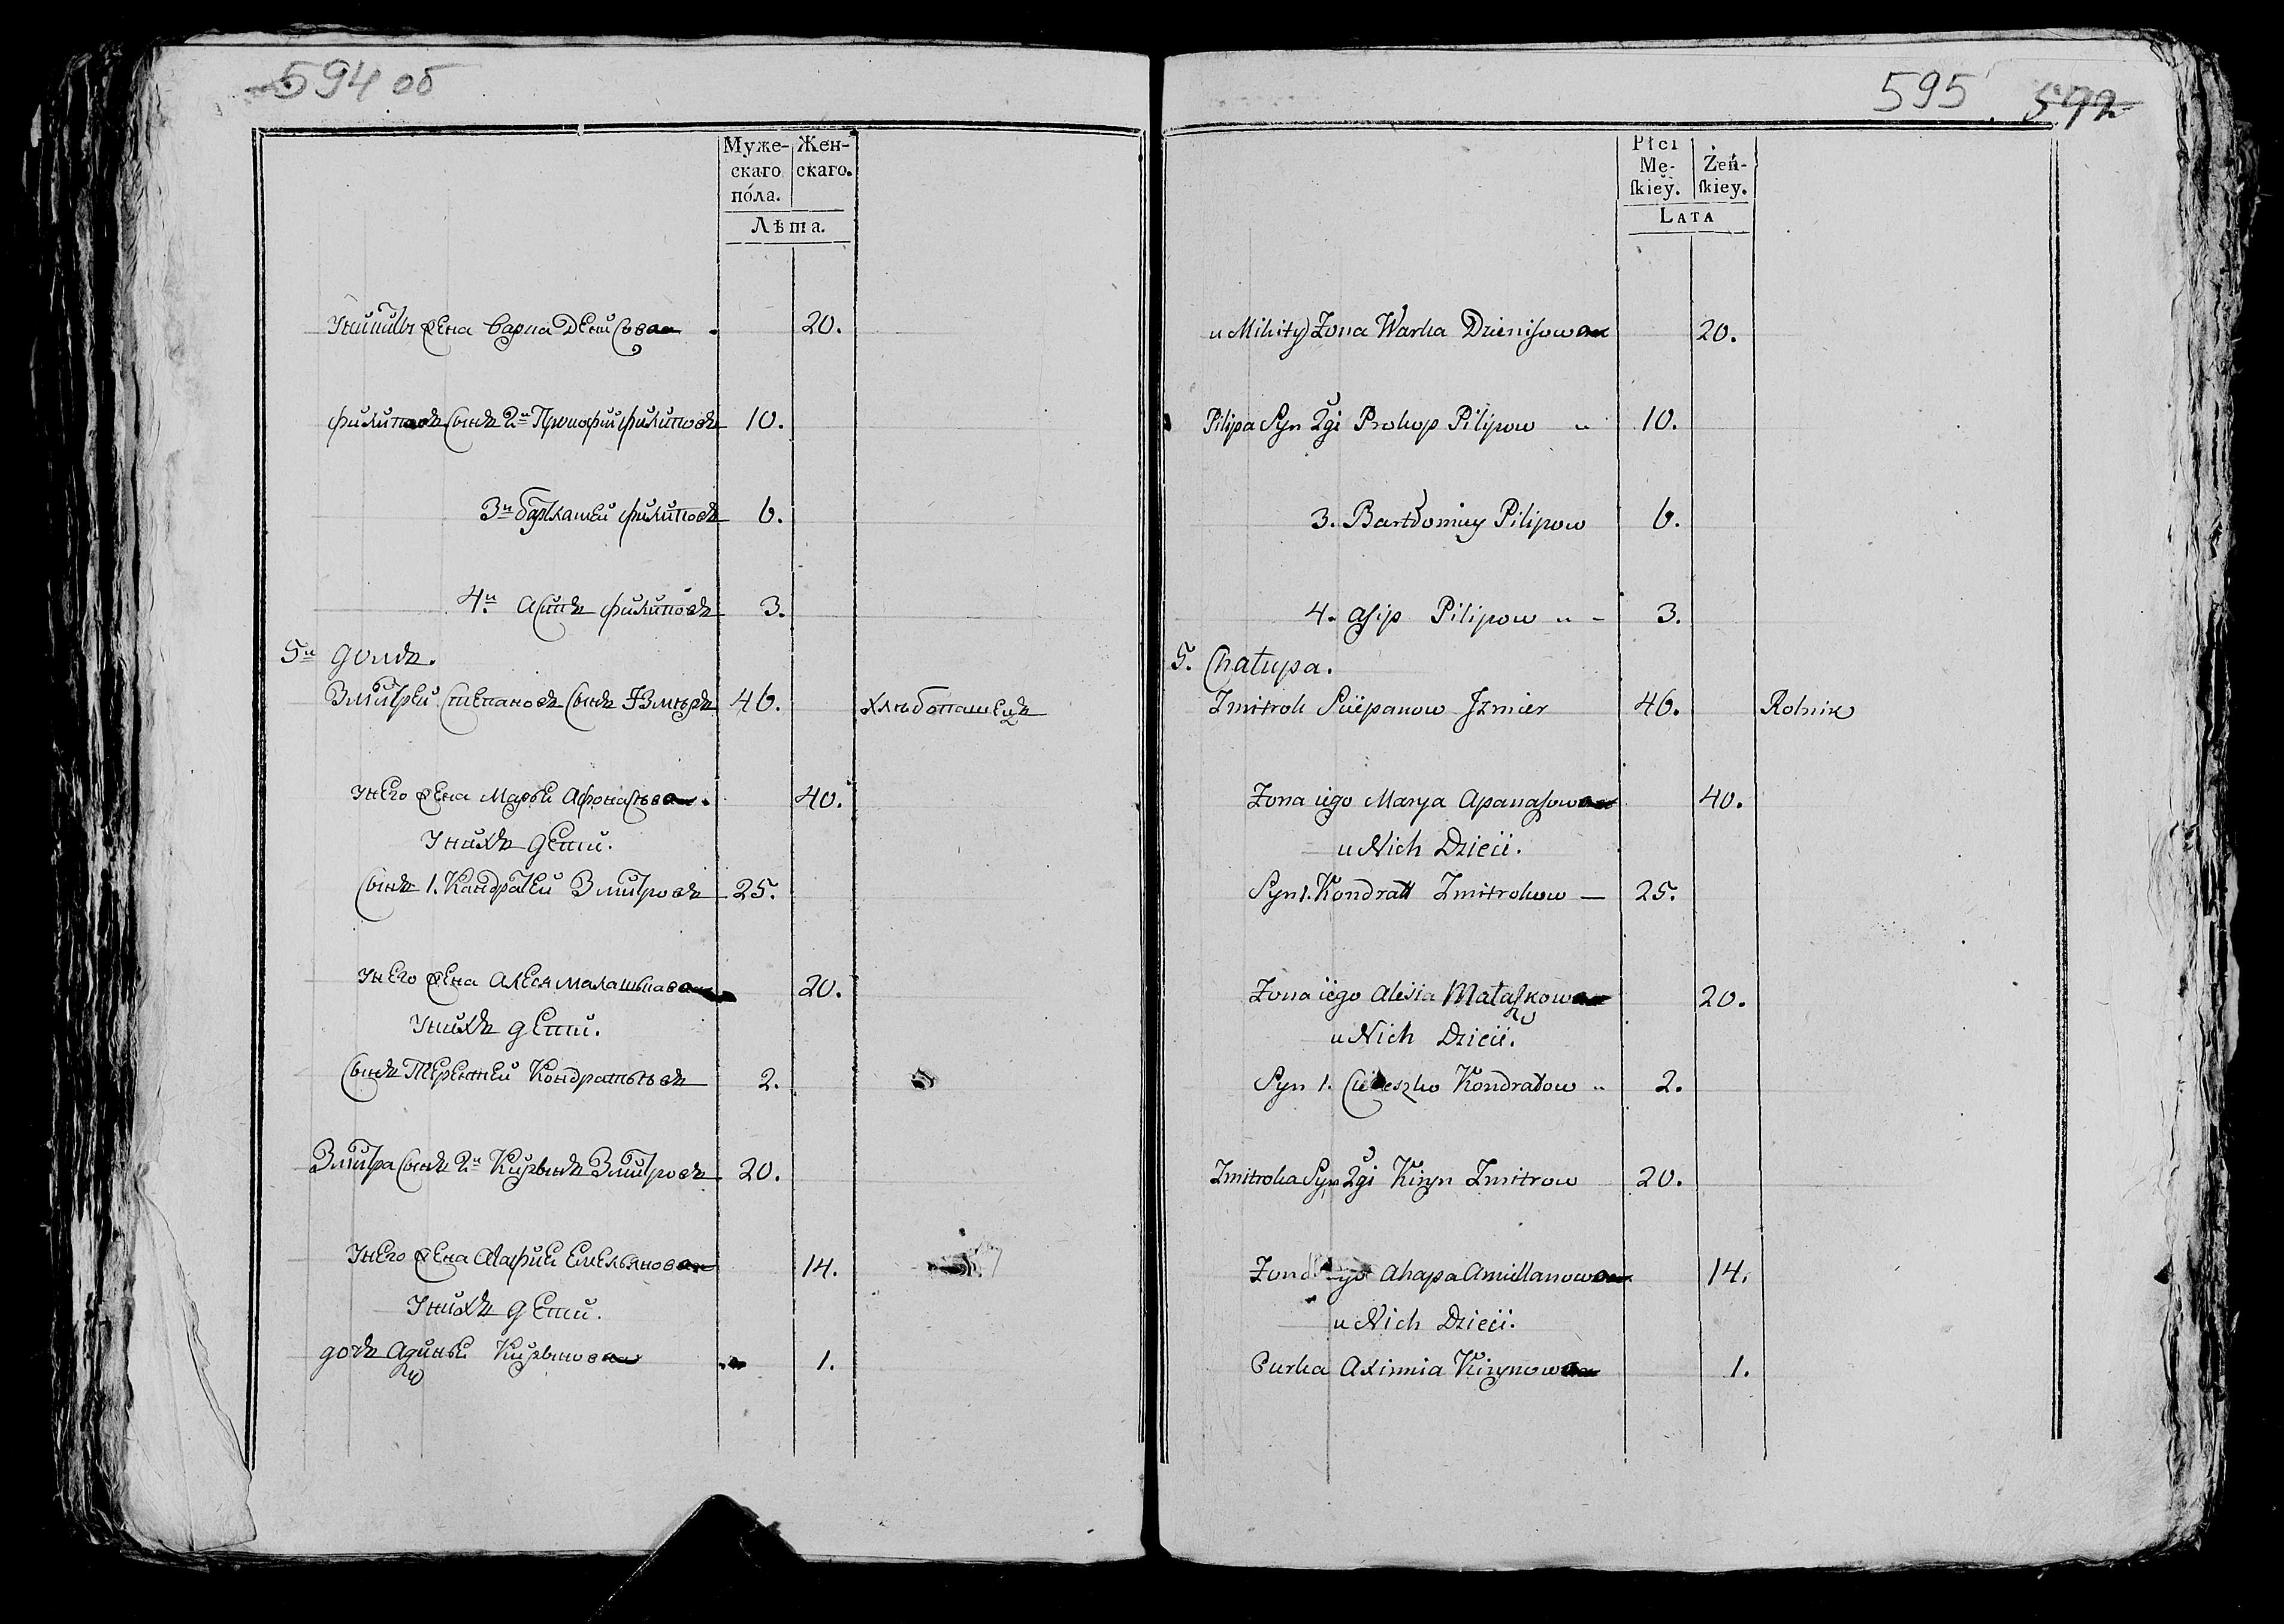 594 об
Муже- Жен-
скаго скаго.
пола.
Лѣта.
Уникиты жена Варка Денисова 20.
Филипова сынъ 2й Прокофий Филиповъ 10.
3й Филиповъ 6.
4й Асипъ Филиповъ 3.
5й домъ.
Змитрей Степановъ сынъ 46. хлѣбопашецъ
Унего жена Марья Афонасьева 40.
Унихъ дети.
Сынъ 1. Кандратей Змитровъ 25.
Унего жена Алеся Малашкава 20.
Унихъ дети.
Сынъ Терентей Кондратьевъ 2.
Змитра сынъ 2й Змитровъ 20.
Унего жена Агафия Емельянова 14.
Унихъ дети.
дочь 1.
595 592
Płci
Mę- Żeń-
ſkiey. ſkiey.
LATA
u Mikity Żona Warka Dzieniſowa 20.
Pilipa Syn 2gi Prokop Pilipow 10.
3. Bartłomiey Pilipow 6.
4. Aſip Pilipow 3.
5. Chałupa.
Zmitrok Sciepanow Jzmier 46. Rolnik
Żona iego Marya Apanaſowa 40.
u Nich Dzieci.
Syn 1. Kondrat Zmitrokow — 25.
Żona iego Alesia Małaſzkowa 20.
u Nich Dzieci.
Syn 1. Kondratow 2.
Zmitroka Syn 2gi Kiryn Zmitrow 20.
Żona Ahapa Amillanowa 14.
u Nich Dzieci.
Curka Axinnia Kirynowa 1.